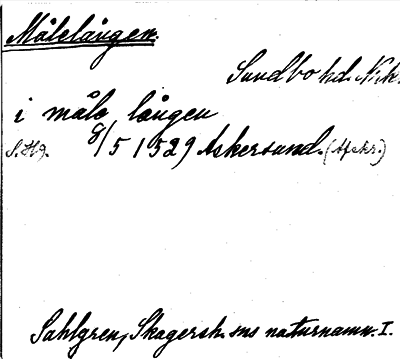 Målelången.
Sundbo hd. Nrk.
i måle lången
8/5 1529 Askersund. (Afskr.)
S. Hg.
Sahlgren, Skagersh. sns naturnamn. I.